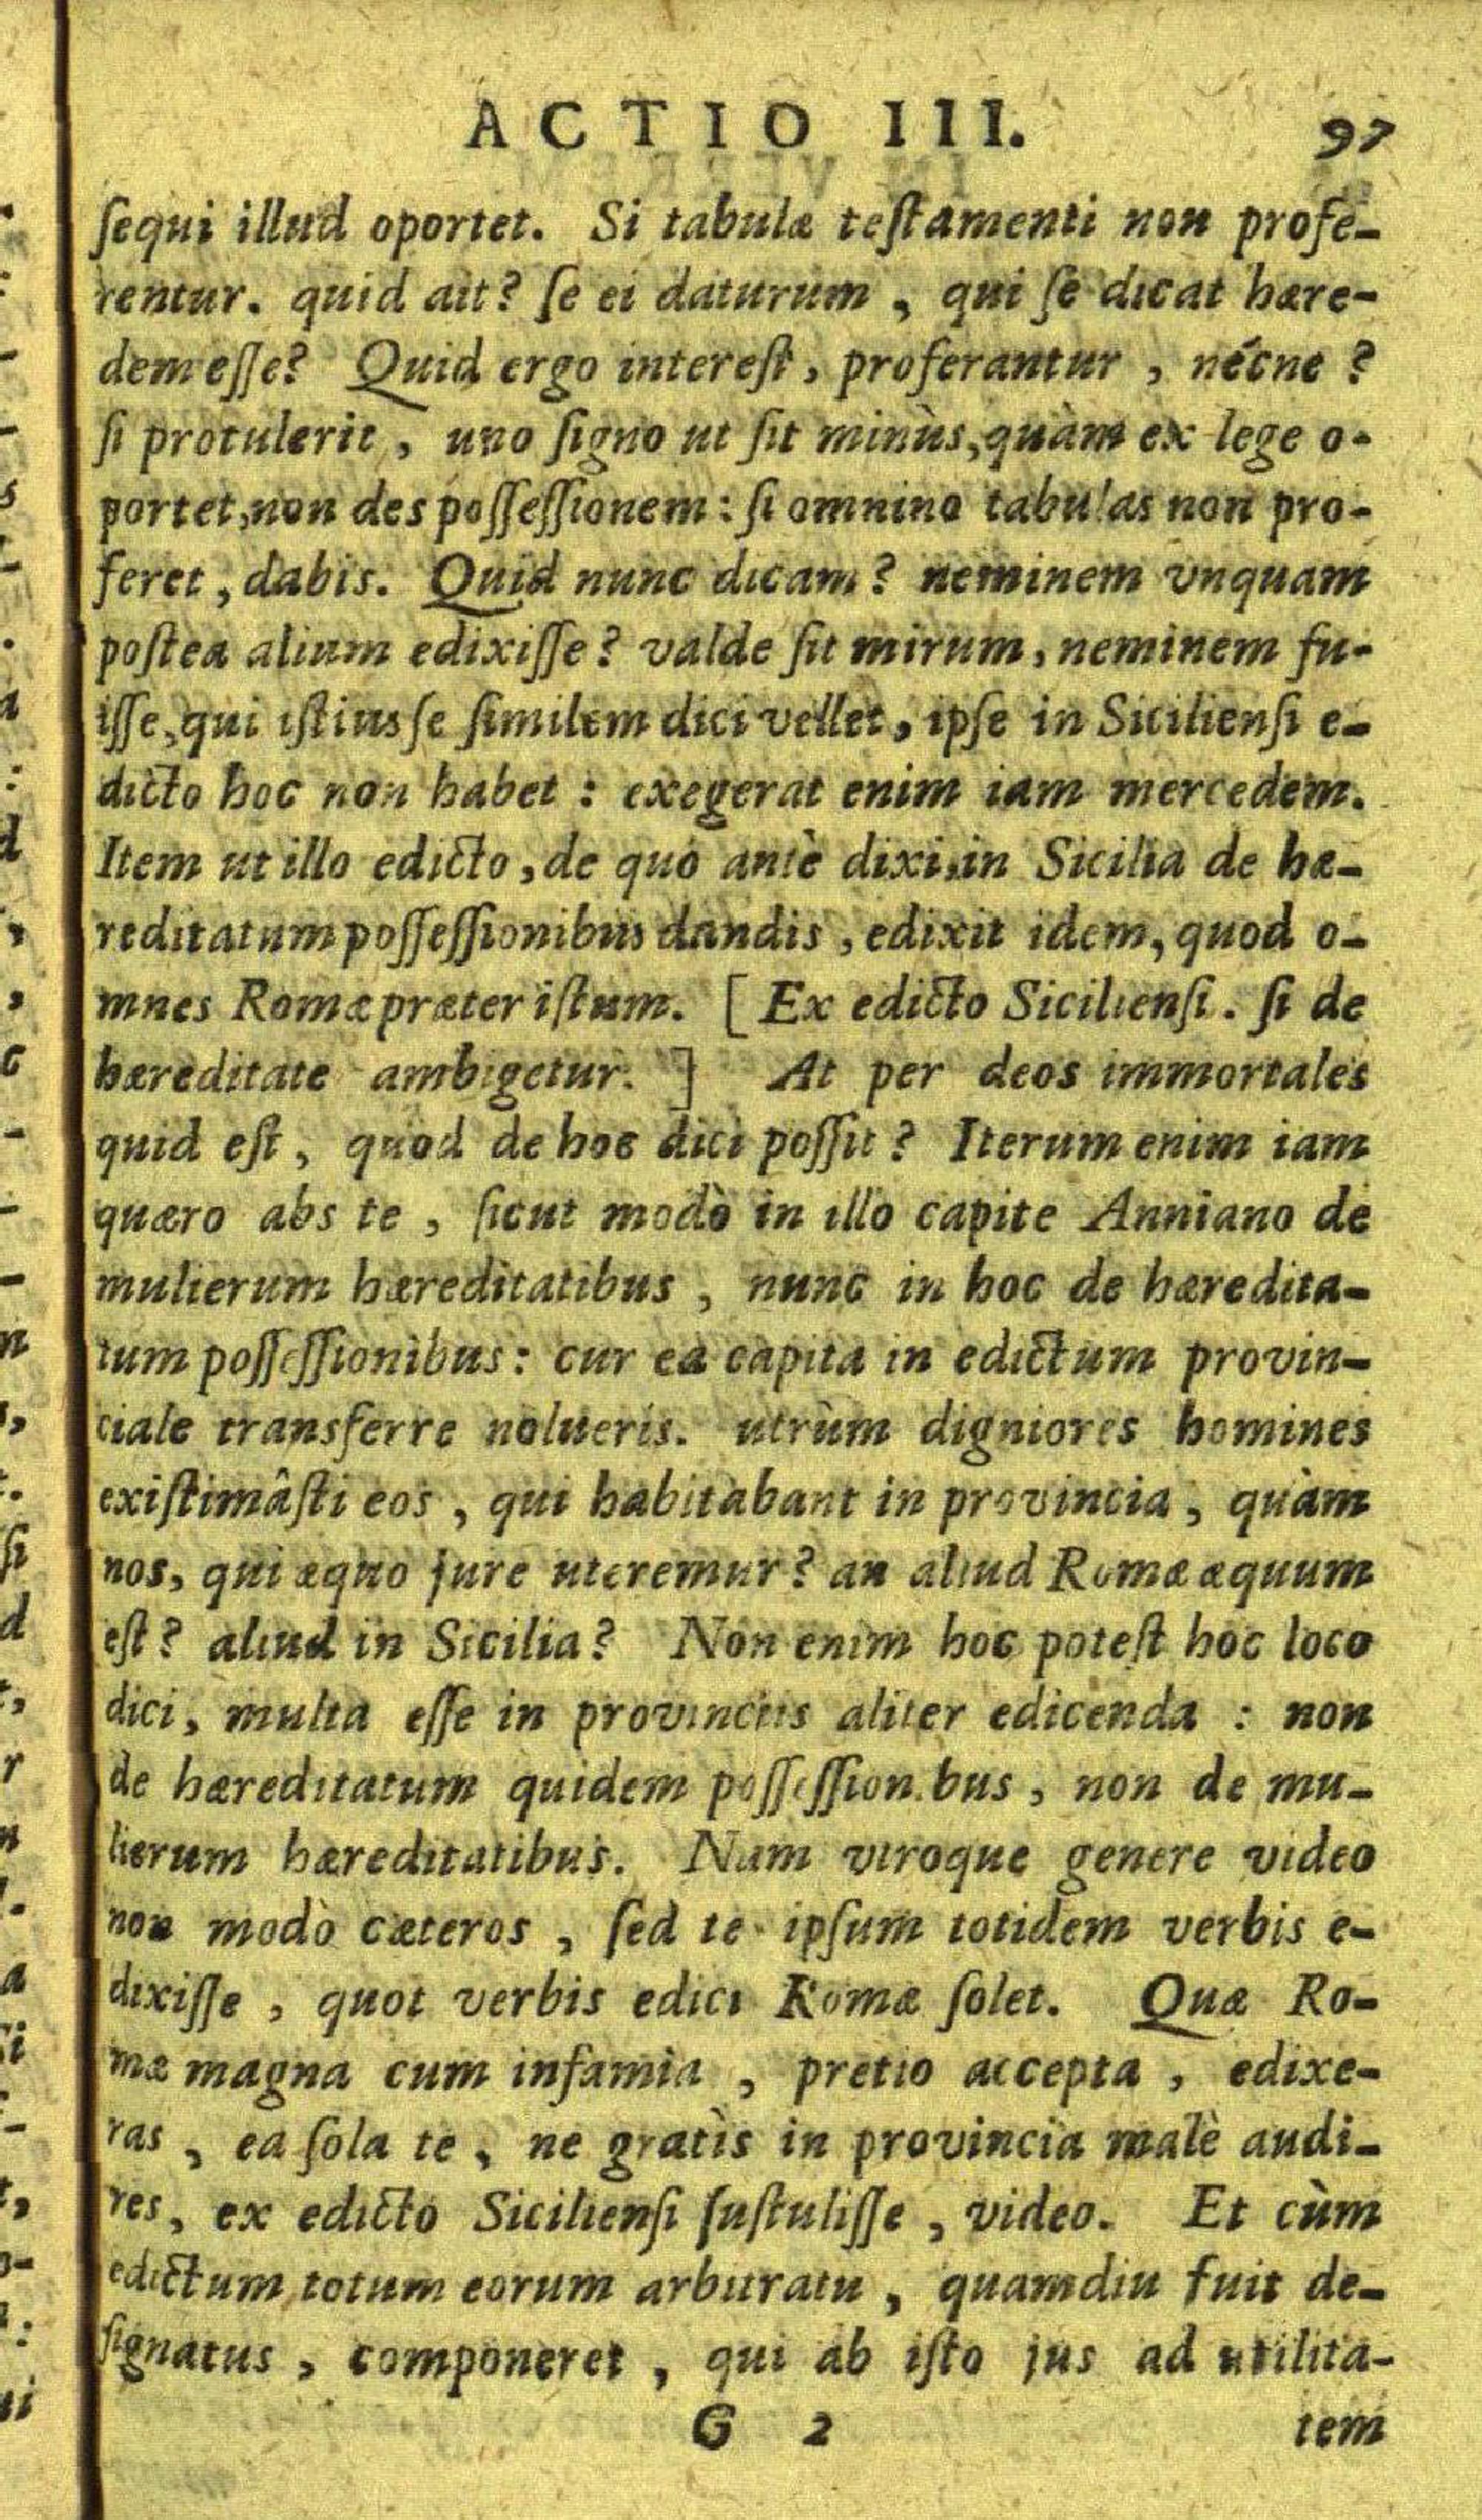 ACTIO III. 97
ſequi illud oportet. Si tabulæ teſtamenti non profe-
rentur. quid ait? ſe ei daturum, qui ſe dicat hære-
dem eſſe? Quid ergo intereſt, proferantur, nécne?
ſi protulerit, uno ſigno ut ſit minùs, quàm ex lege o-
portet, non des poſſeſſionem: ſi omnino tabulas non pro-
feret, dabis. Quid nunc dicam? neminem vnquam
poſtea alium edixiſſe? valde ſit mirum, neminem fu-
iſſe, qui iſtius ſe ſimilem dici vellet, ipſe in Sicilienſi e-
dicto hoc non habet: exegerat enim iam mercedem.
Item ut illo edicto, de quo antè dixi, in Sicilia de hæ-
reditatum poſſeſſionibus dandis, edixit idem, quod o-
mnes Romæ præter iſtum. [Ex edicto Sicilienſi. ſi de
hæreditate ambigetur.] At per deos immortales
quid eſt, quod de hoc dici poſſit? Iterum enim iam
quæro abs te, ſicut modò in illo capite Anniano de
mulierum hæreditatibus, nunc in hoc de hæredita-
tum poſſeſſionibus: cur ea capita in edictum provin-
ciale transferre nolueris. utrùm digniores homines
exiſtimâſti eos, qui habitabant in provincia, quàm
nos, qui æquo jure uteremur? an aliud Romæ æquum
eſt? aliud in Sicilia? Non enim hoc poteſt hoc loco
dici, multa eſſe in provinciis aliter edicenda: non
de hæreditatum quidem poſſeſſionibus, non de mu-
lierum hæreditatibus. Nam vtroque genere video
non modò cæteros, ſed te ipſum totidem verbis e-
dixiſſe, quot verbis edici Romæ ſolet. Quæ Ro-
mæ magna cum infamia, pretio accepta, edixe-
ras, ea ſola te, ne gratìs in provincia malè audi-
res, ex edicto Sicilienſi ſuſtuliſſe, video. Et cùm
edictum totum eorum arbitratu, quamdiu fuit de-
ſignatus, componeret, qui ab iſto jus ad utilita-
G 2 tem